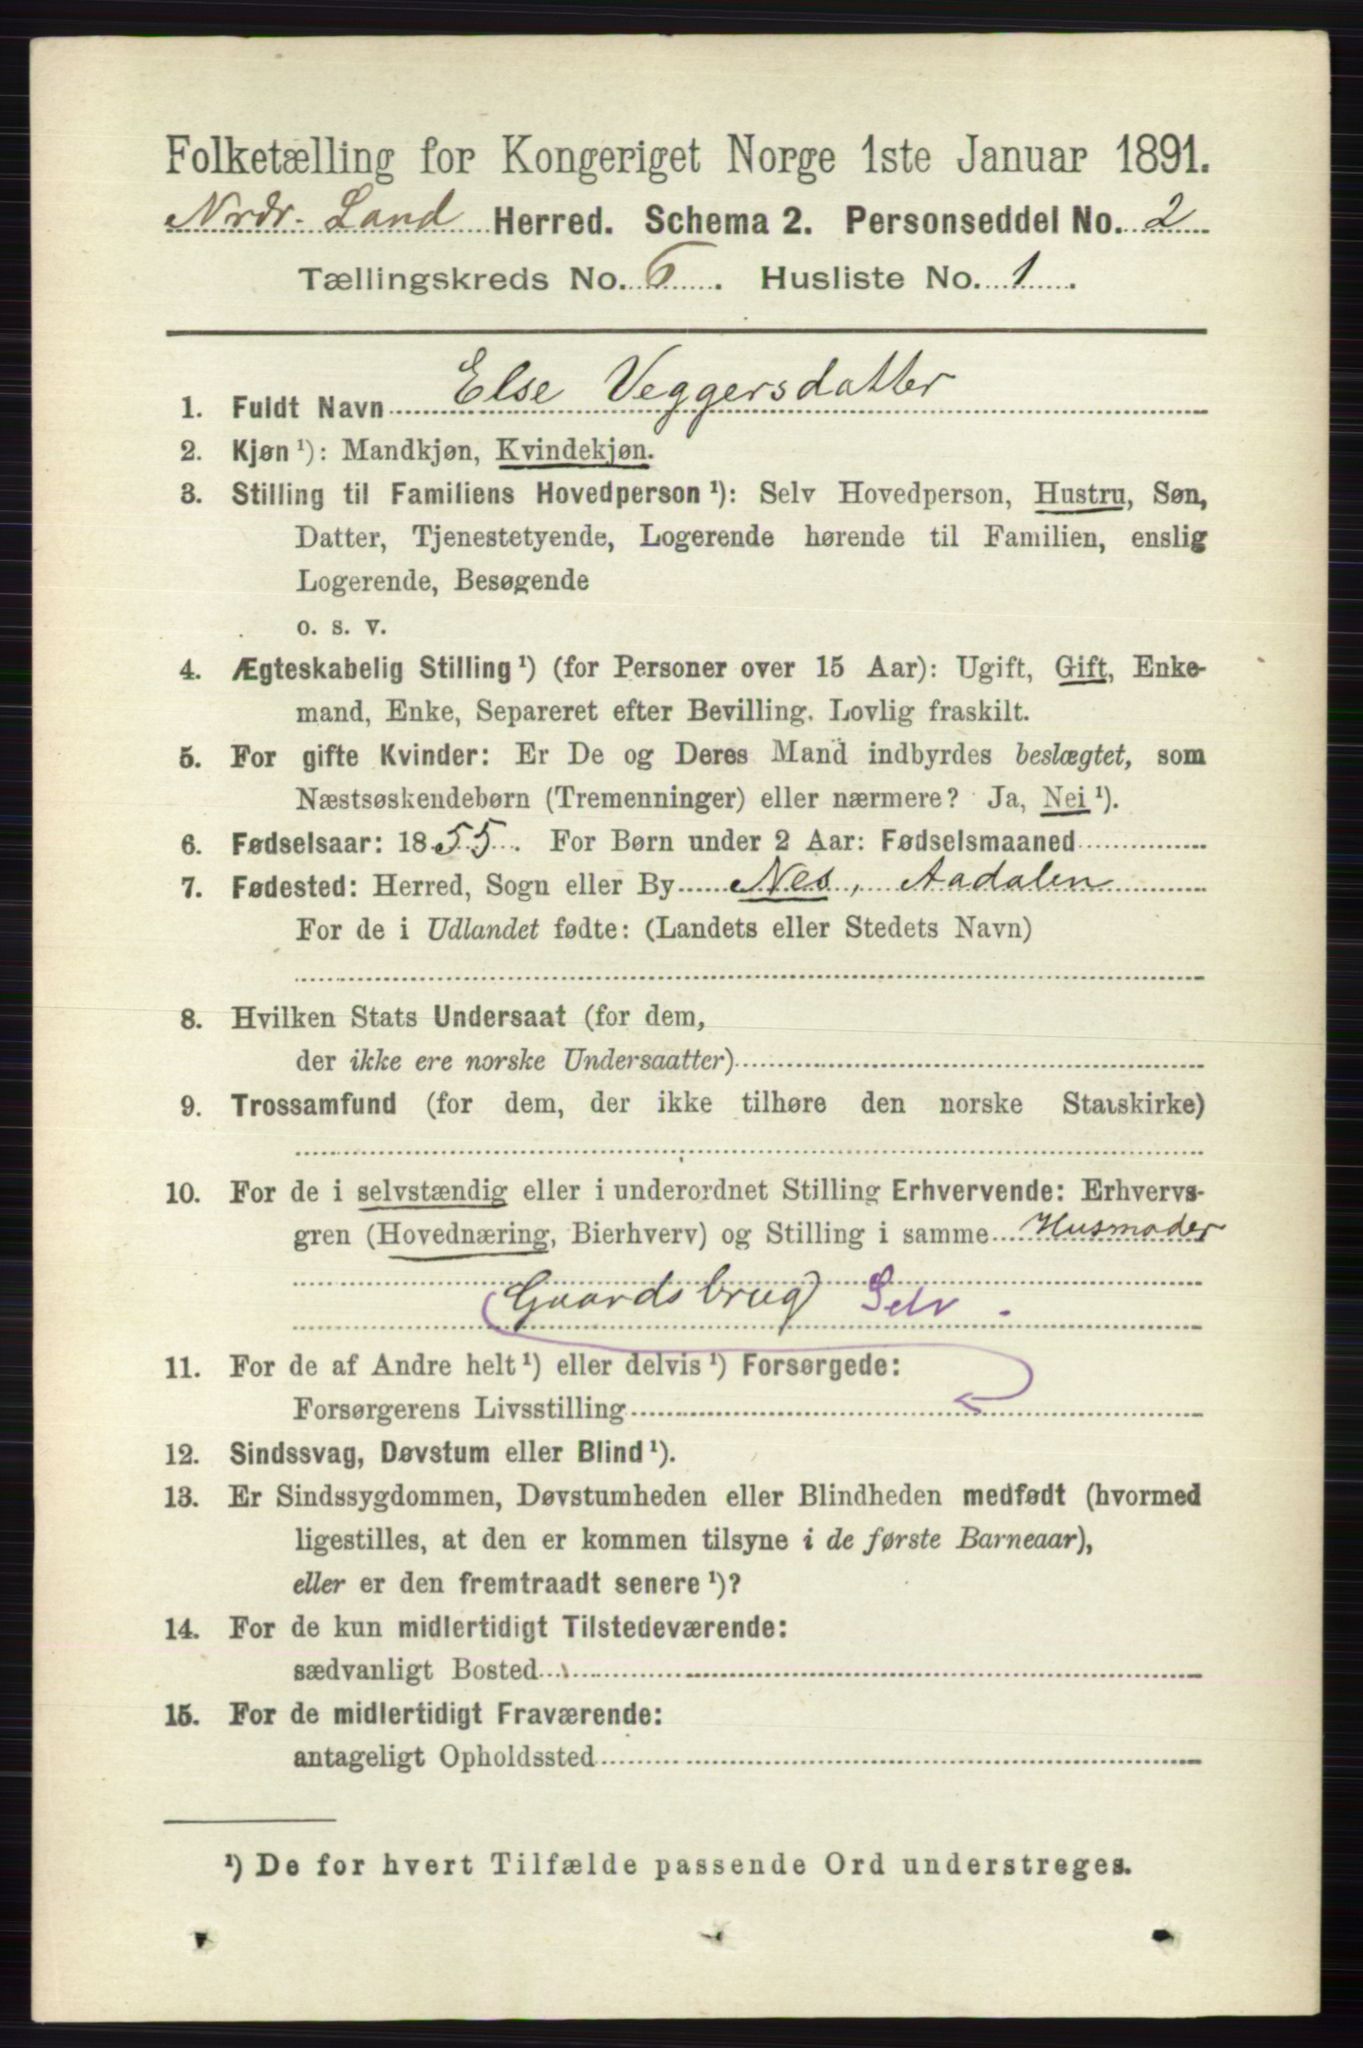 Folketælling for Kongeriget Norge 1ste Januar 1891.
Nrdr. Land Herred. Schema 2. Personseddel No. 2
Tællingskreds No. 6. Husliste No. 1.
1. Fuldt Navn Else Veggersdatter
2. Kjøn ¹): Mandkjøn, Kvindekjøn.
3. Stilling til Familiens Hovedperson ¹): Selv Hovedperson, Hustru, Søn,
Datter, Tjenestetyende, Logerende hørende til Familien, enslig
Logerende, Besøgende
o. s. v.
4. Ægteskabelig Stilling ¹) (for Personer over 15 Aar): Ugift, Gift, Enke-
mand, Enke, Separeret efter Bevilling. Lovlig fraskilt.
5. For gifte Kvinder: Er De og Deres Mand indbyrdes beslægtet, som
Næstsøskendebørn (Tremenninger) eller nærmere? Ja, Nei ¹).
6. Fødselsaar: 1855. For Børn under 2 Aar: Fødselsmaaned
7. Fødested: Herred, Sogn eller By Nes, Aadalen
For de i Udlandet fødte: (Landets eller Stedets Navn)
8. Hvilken Stats Undersaat (for dem,
der ikke ere norske Undersaatter)
9. Trossamfund (for dem, der ikke tilhøre den norske Statskirke)
10. For de i selvstændig eller i underordnet Stilling Erhvervende: Erhvervs-
gren (Hovednæring, Bierhverv) og Stilling i samme Husmoder
(Gaardsbrug) Selv.
11. For de af Andre helt ¹) eller delvis ¹) Forsørgede:
Forsørgerens Livsstilling
12. Sindssvag, Døvstum eller Blind ¹).
13. Er Sindssygdommen, Døvstumheden eller Blindheden medfødt (hvormed
ligestilles, at den er kommen tilsyne i de første Barneaar),
eller er den fremtraadt senere ¹)?
14. For de kun midlertidigt Tilstedeværende:
sædvanligt Bosted
15. For de midlertidigt Fraværende:
antageligt Opholdssted
¹) De for hvert Tilfælde passende Ord understreges.